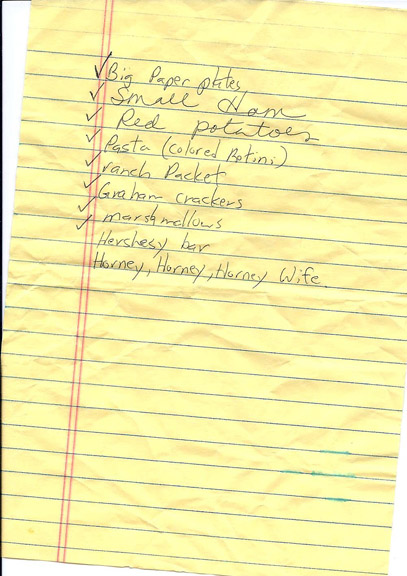 ✓ Big Paper plates
✓ Small Ham
✓ Red potatoes
✓ Pasta (colored Rotini)
✓ ranch Packet
✓ Graham crackers
✓ marshmellows
✓ Hershesy bar
Horney, Horney, Horney Wife.